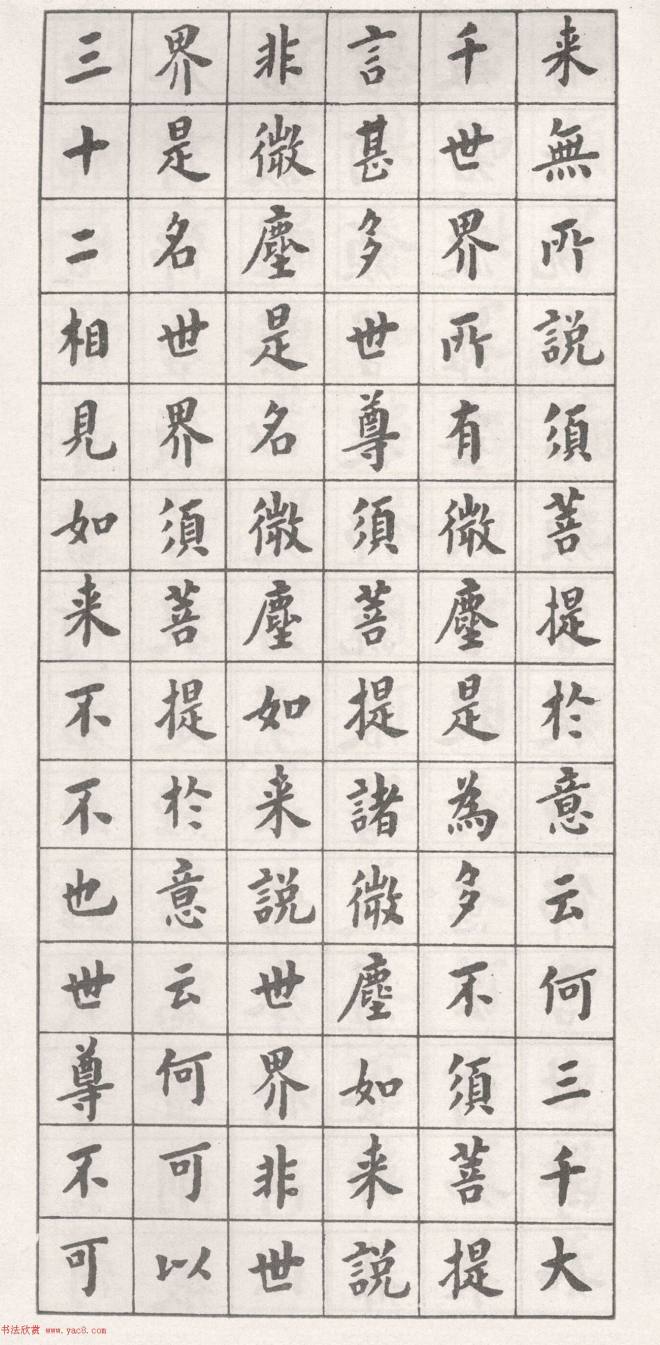 来無所說須菩提於意云何三千大
千世界所有微塵是為多不須菩提
言甚多世尊須菩提諸微塵如来說
非微塵是名微塵如来說世界非世
界是名世界須菩提於意云何可以
三十二相見如来不不也世尊不可
书法欣赏 www.yac8.com